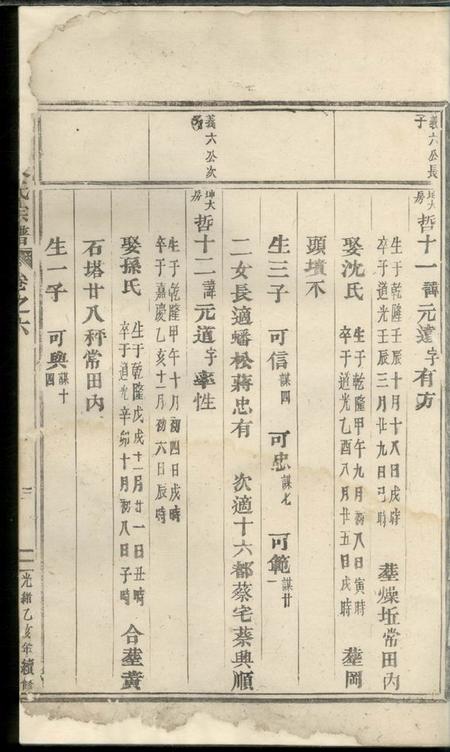 義六公長子
坤大房 哲十一諱元達字有方
生于乾隆壬辰十月十八日戌時
卒于道光壬辰三月廿九日己時
葬燥坵常田內
娶沈氏
生于乾隆甲午九月初八日寅時
卒于道光乙酉八月廿五日戌時
葬岡
頭墳不
生三子 可信謀四 可忠謀七 可範謀廿一
二女長適蟠松蔣忠有 次適十六都蔡宅蔡典順
義六公次子
坤大房 哲十二諱元道字率性
生于乾隆甲午十月初四日戌時
卒于嘉慶乙亥十二月初六日辰時
娶孫氏
生于乾隆戊戌十一月廿一日丑時
卒于道光辛卯十月初八日子時
合葬黃
石塔廿八秤常田內
生一子 可興謀十四
氏宗譜 卷之六
三
光緒乙亥年續修